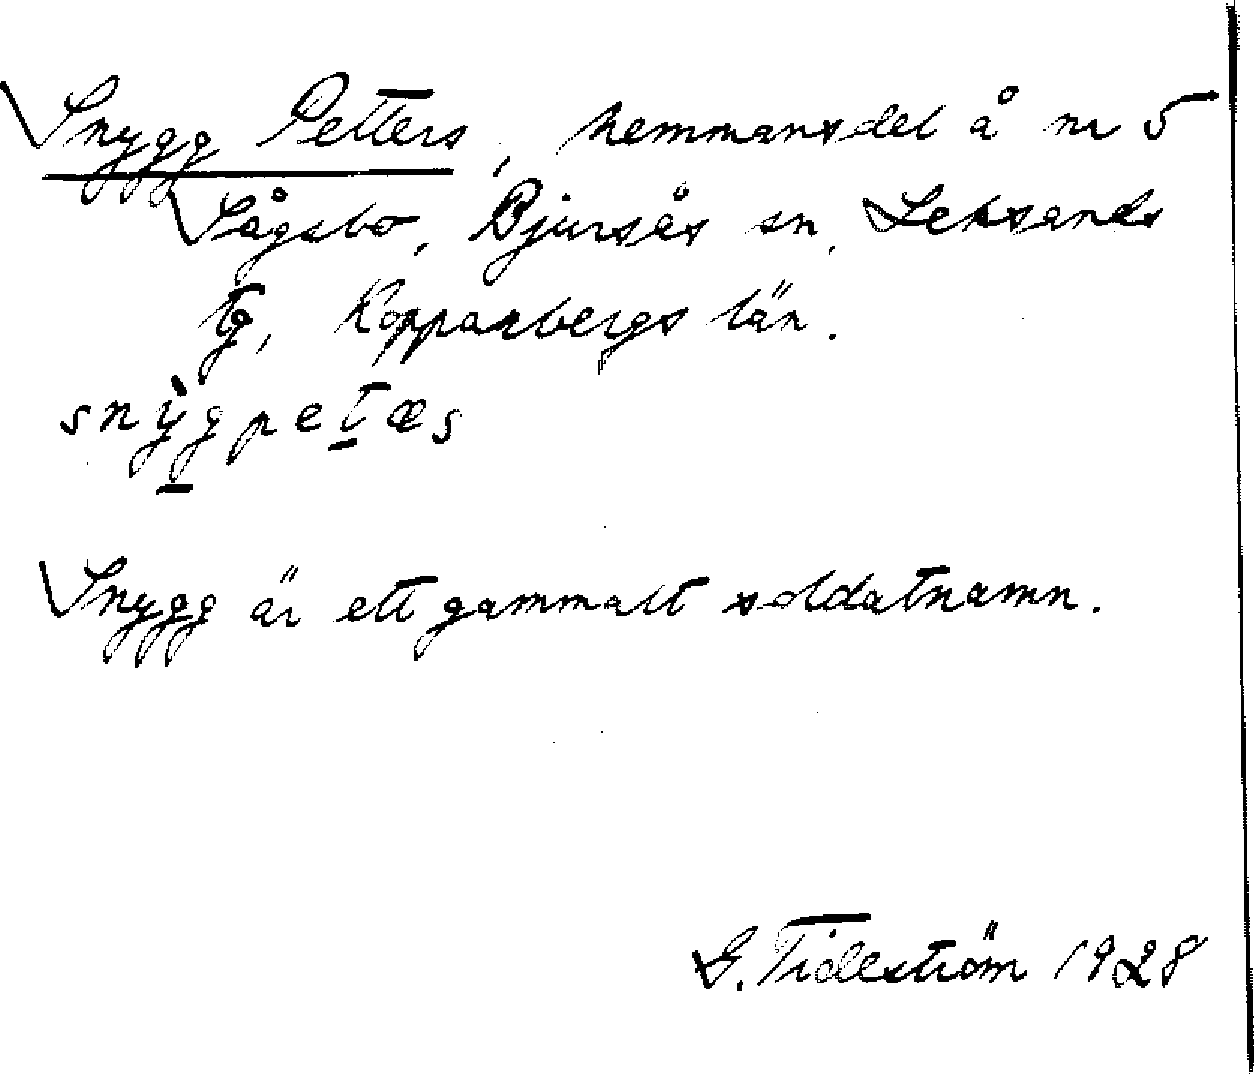 Snygg Petters, hemmansdel å nr 5
Sågsbo, Bjursås sn, Leksands
tg, Kopparbergs län.
snỳg̠pet̠æs
Snygg är ett gammalt soldatnamn.
G. Tideström 1928